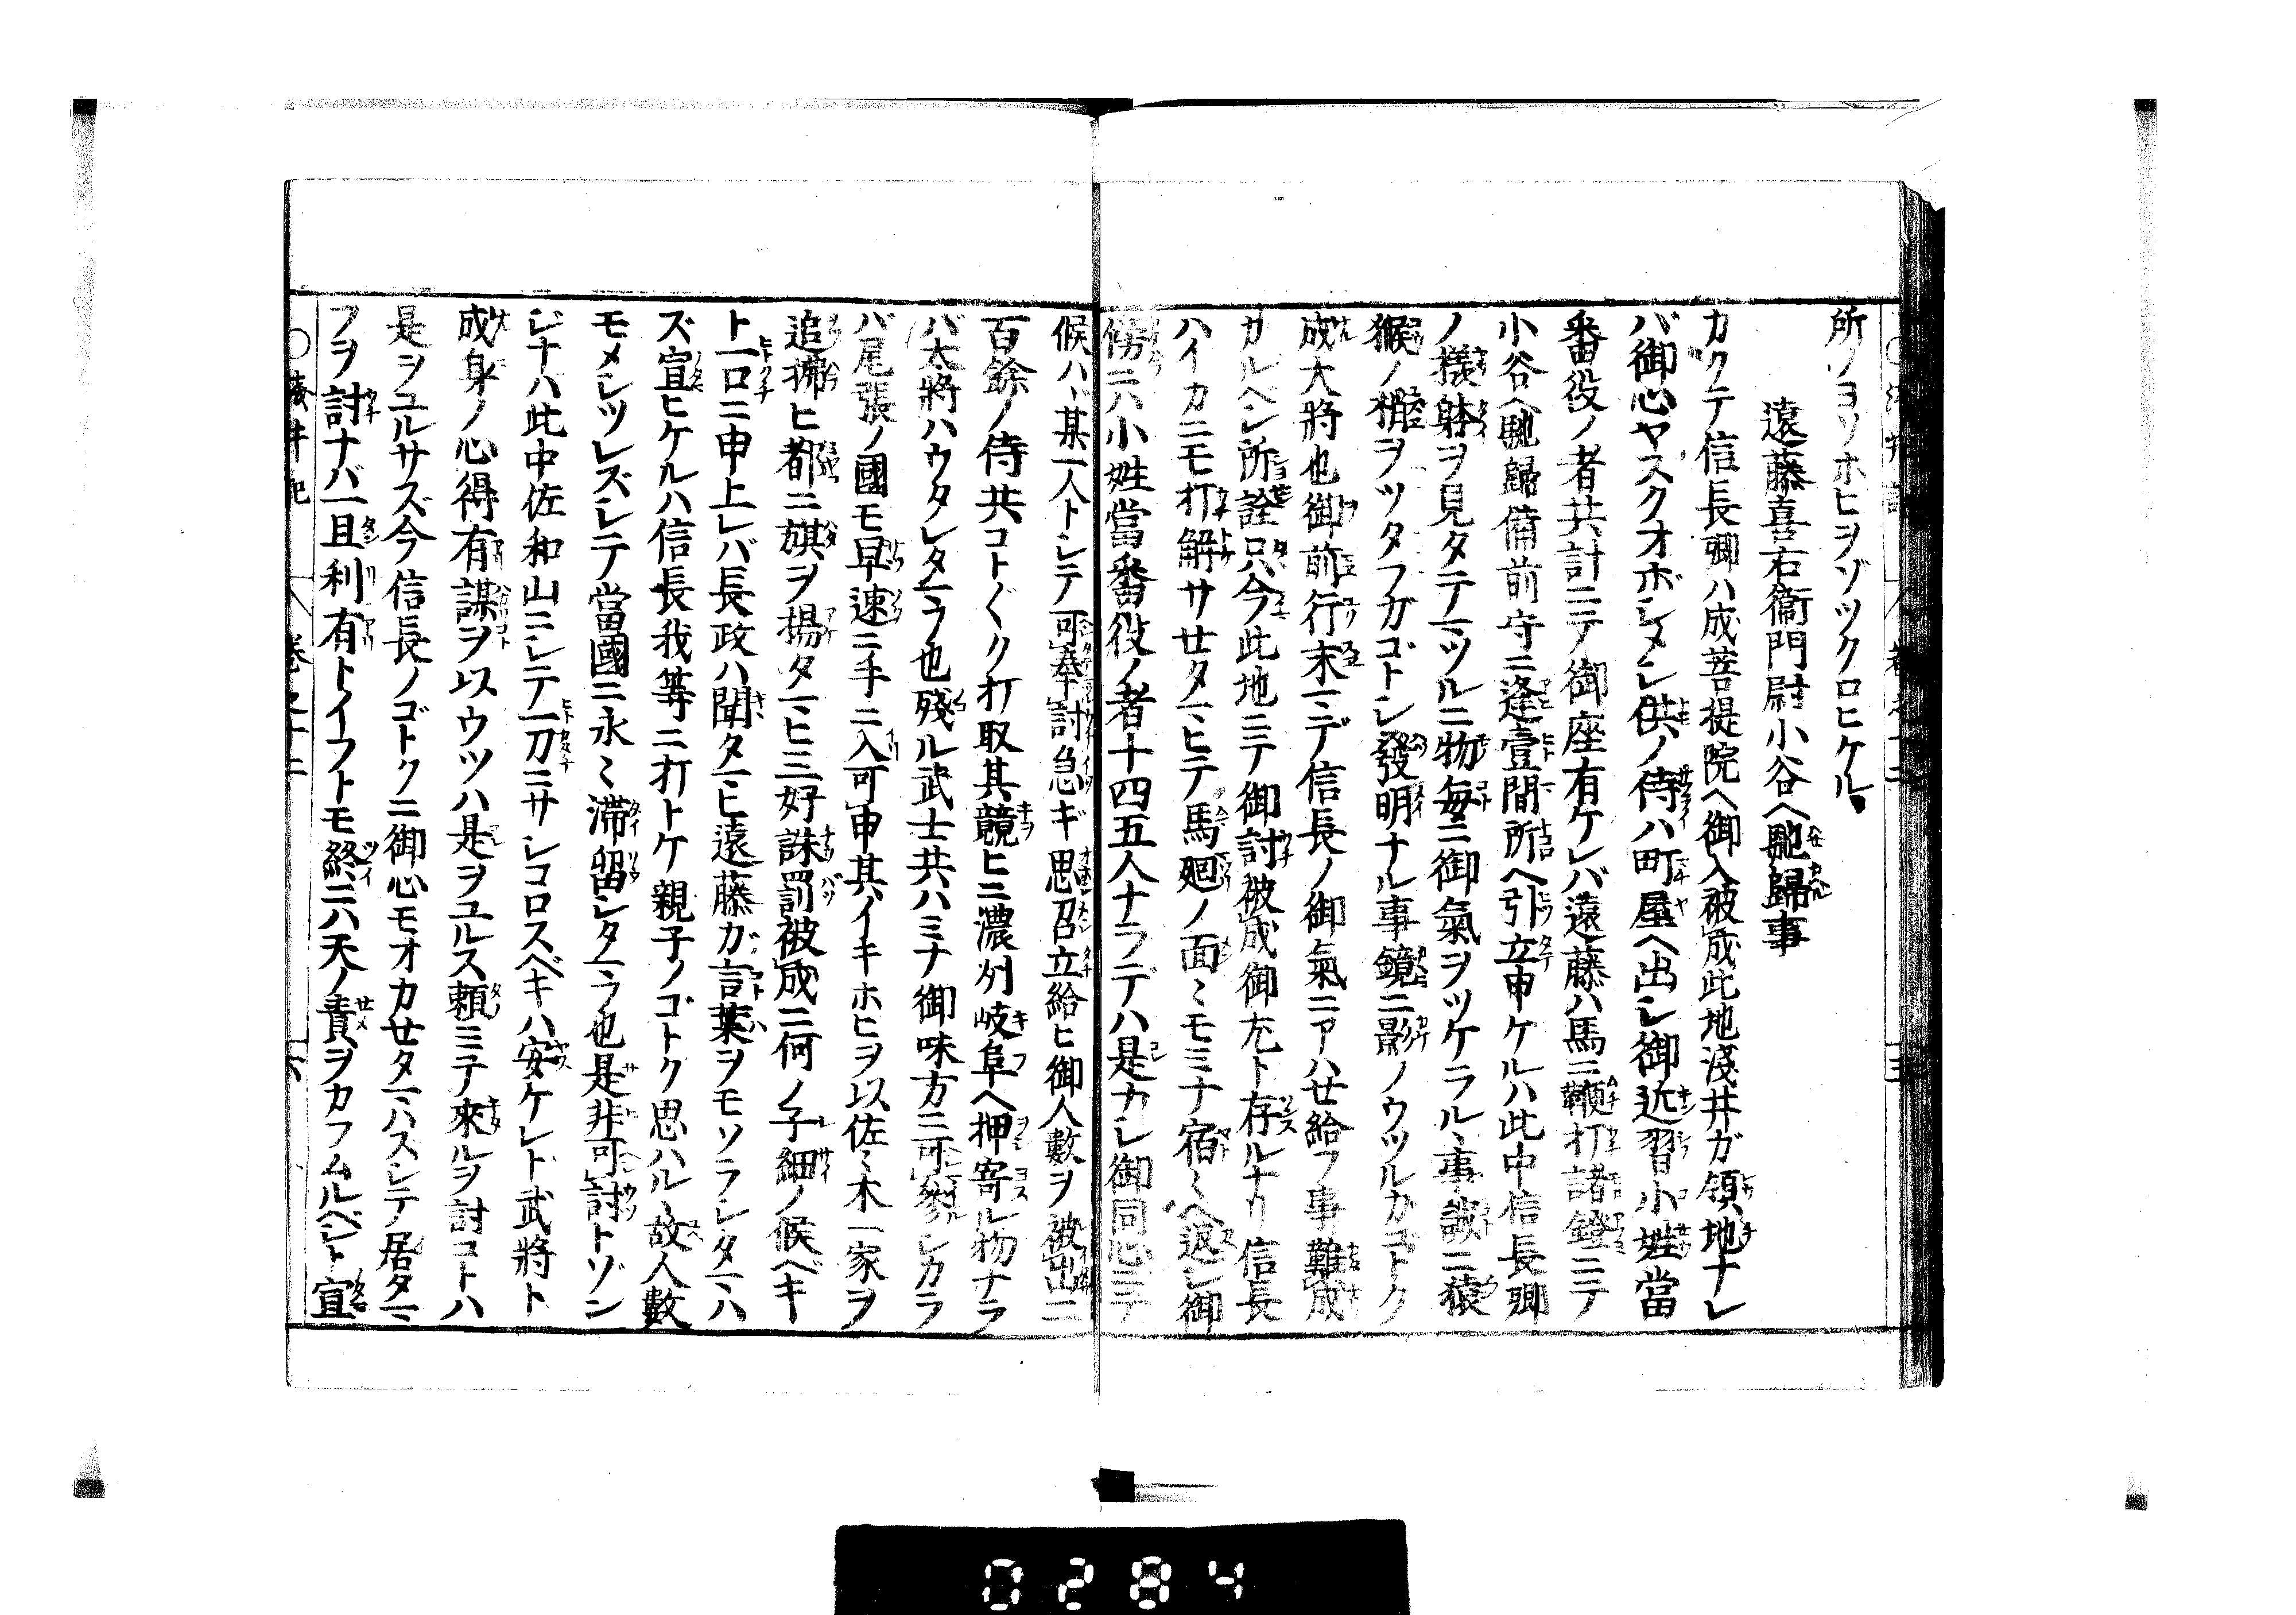 所ノヨソホヒヲゾツクロヒケル
遠藤喜右衞門尉小谷ヘ馳歸事
カクテ信長卿ハ成菩提院ヘ御入被成此地淺井ガ領地ナレ
バ御心ヤスクオボシメシ供ノ侍ハ町屋ヘ出シ御近習小姓當
番役ノ者共計ニテ御座有ケレバ遠藤ハ馬ニ鞭打諸鐙ニテ
小谷ヘ馳歸備前守ニ逢壹間所ヘ引立申ケルハ此中信長卿
ノ樣躰ヲ見タテマツルニ物毎ニ御氣ヲツケラルヽ事誠ニ猿
猴ノ梢ヲツタフガゴトシ發明ナル事鏡ニ影ノウツルカゴトク
成大將也御前行末マデ信長ノ御氣ニアハせ給フ事難成
カルヘシ所詮只今此地ニテ御討被成御尤ト存ルナリ信長
ハイカニモ打解サせタマヒテ馬廻ノ面々モミナ宿々ヘ返シ御
傍ニハ小姓當番役ノ者十四五人ナラデハ是ナシ御同心ニテ
候ハヾ某一人トシテ可奉討急ギ思召立給ヒ御人數ヲ被出二
百餘ノ侍共コト〴〵ク打取其競ヒニ濃州岐阜ヘ押寄ル物ナラ
バ大將ハウタレタマフ也殘ル武士共ハミナ御味方ニ可參シカラ
バ尾張ノ國モ早速ニ手ニ入可申其イキホヒヲ以佐々木一家ヲ
追拂ヒ都ニ旗ヲ揚タマヒ三好誅罰被成ニ何ノ子細ノ候ベキ
ト一口ニ申上レバ長政ハ聞タマヒ遠藤ガ言葉ヲモソラシタマハ
ズ宣ヒケルハ信長我等ニ打トケ親子ノゴトク思ハルヽ故人數
モメシツレズシテ當國ニ永々滯留シタマフ也是非可討トゾン
ジナハ此中佐和山ニシテ一刀ニサシコロスベキハ安ケレド武將ト
成身ノ心得有謀ヲ以ウツハ是ヲユルス頼ミテ來ルヲ討コトハ
是ヲユルサズ今信長ノゴトクニ御心モオカせタマハスシテ居タマ
フヲ討ナバ一旦利有トイフトモ終ニハ天ノ責ヲカフムルベシト宣